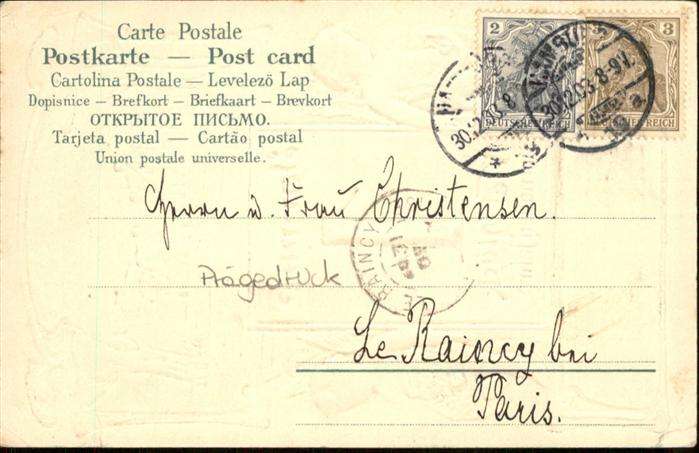 Carte Postale
Postkarte — Post card
Cartolina Postale — Levelező Lap
Dopisnice — Brefkort — Briefkaart — Brevkort
ОТКРЫТОЕ ПИСЬМО.
Tarjeta postal — Cartão postal
Union postale universelle.
2
3
DEUTSCHES REICH
REICH
30.12.03.8-9V.
Herrn u. Frau Christensen.
RAINCY
Prägedruck
Le Raincy bei
Paris.